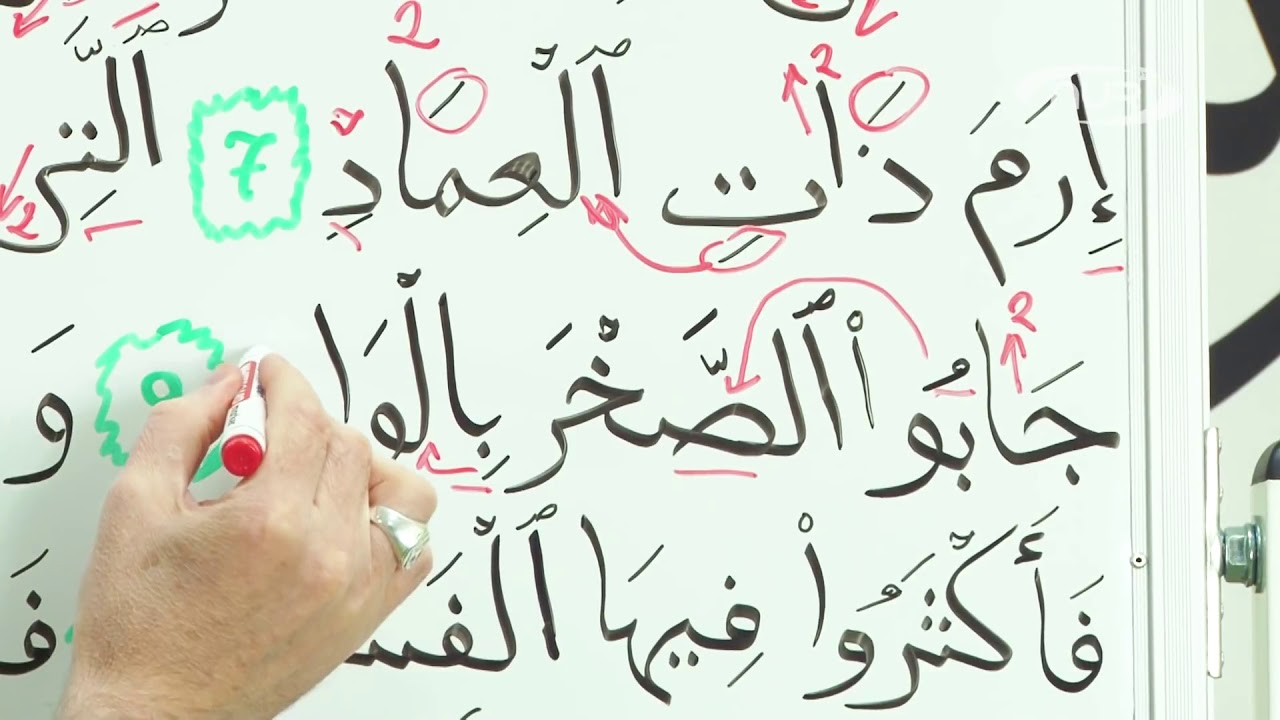 إِرَمَ ذَاتِ ٱلْعِمَادِ 7 ٱلَّتِي
جَابُوا۟ ٱلصَّخْرَ بِالْوَا 9 وَ
فَأَكْثَرُوا۟ فِيهَا ٱلْفَسَ